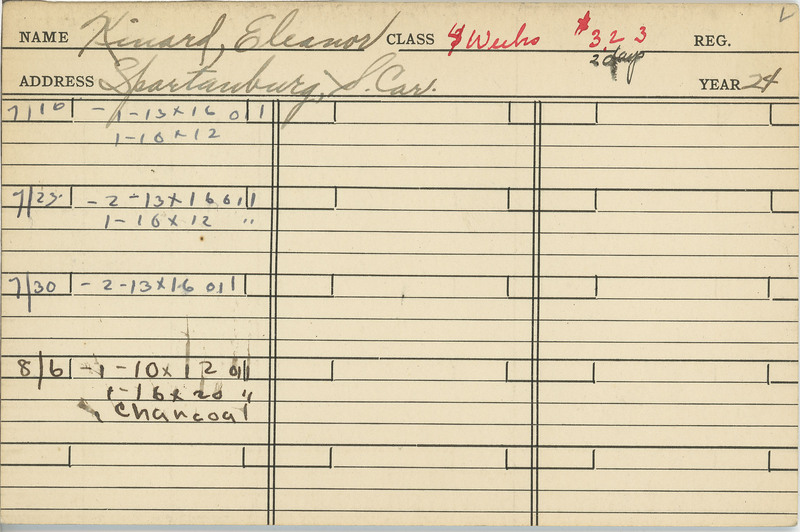 NAME Kinard, Eleanor CLASS 4 Weeks $3,2 3 REG.
2 days
ADDRESS Spartanburg, S. Car. YEAR 24
7/16 - 1-13x16 oil
1-10x12
7/23 - 2-13x16 oil
1-10x12 "
7/30 - 2-13x16 oil
8/6 - 1-10x12 oil
1-16x20 "
Charcoal